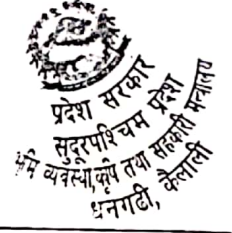 प्रदेश सरकार
सुदूरपश्चिम प्रदेश
भूमि व्यवस्था,कृषि तथा सहकारी मन्त्रालय
धनगढी, कैलाली